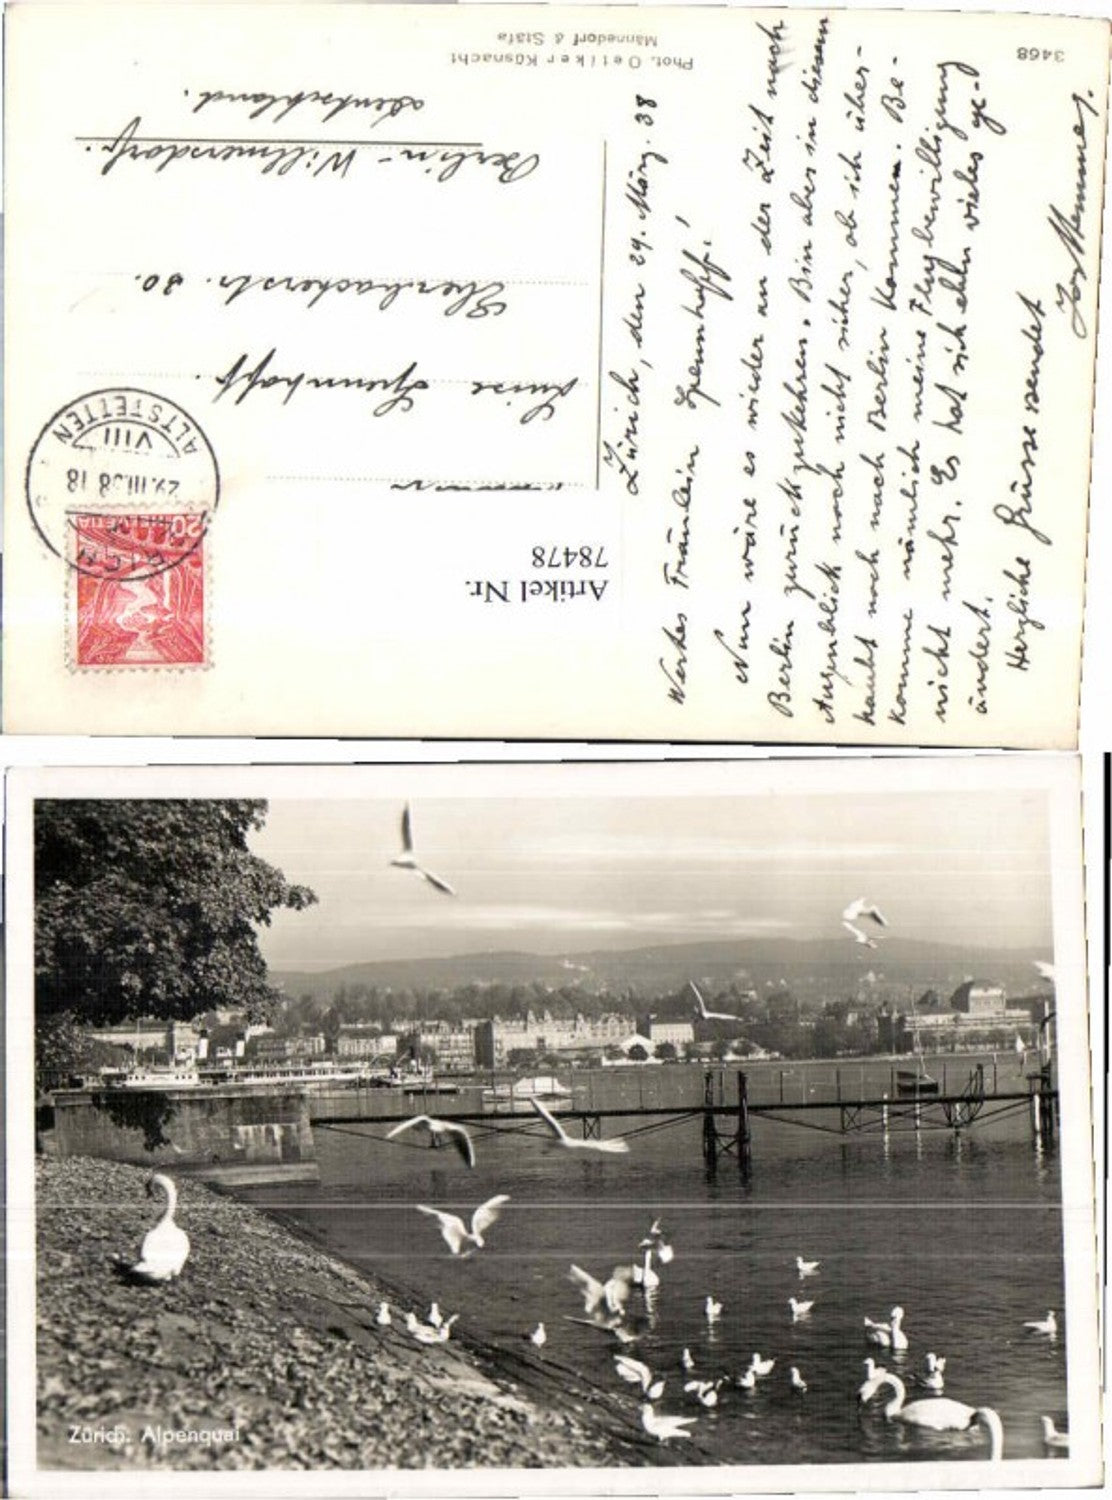 3468
Phot. Oetiker Küsnacht
Männedorf & Stäfa
Zürich, den 29. März. 38
Wertes Fräulein Spennhoff!
Nun wäre es wieder an der Zeit nach
Berlin zurückzukehren. Bin aber in diesem
Augenblick noch nicht sicher, ob ich über-
haubt noch nach Berlin kommen. Be-
komme nämlich meine Flugbewilligung
nicht mehr. Es hat sich eben vieles ge-
ändert.
Herzliche Grüsse sendet
Luise Spennhoff.
Eberbacherstr. 30.
Berlin-Willmersdorf.
Deutschland.
Artikel Nr.
78478
ALTSTETTEN
VIII
29.III.38 18
HELVETIA
20
Zürich. Alpenquai